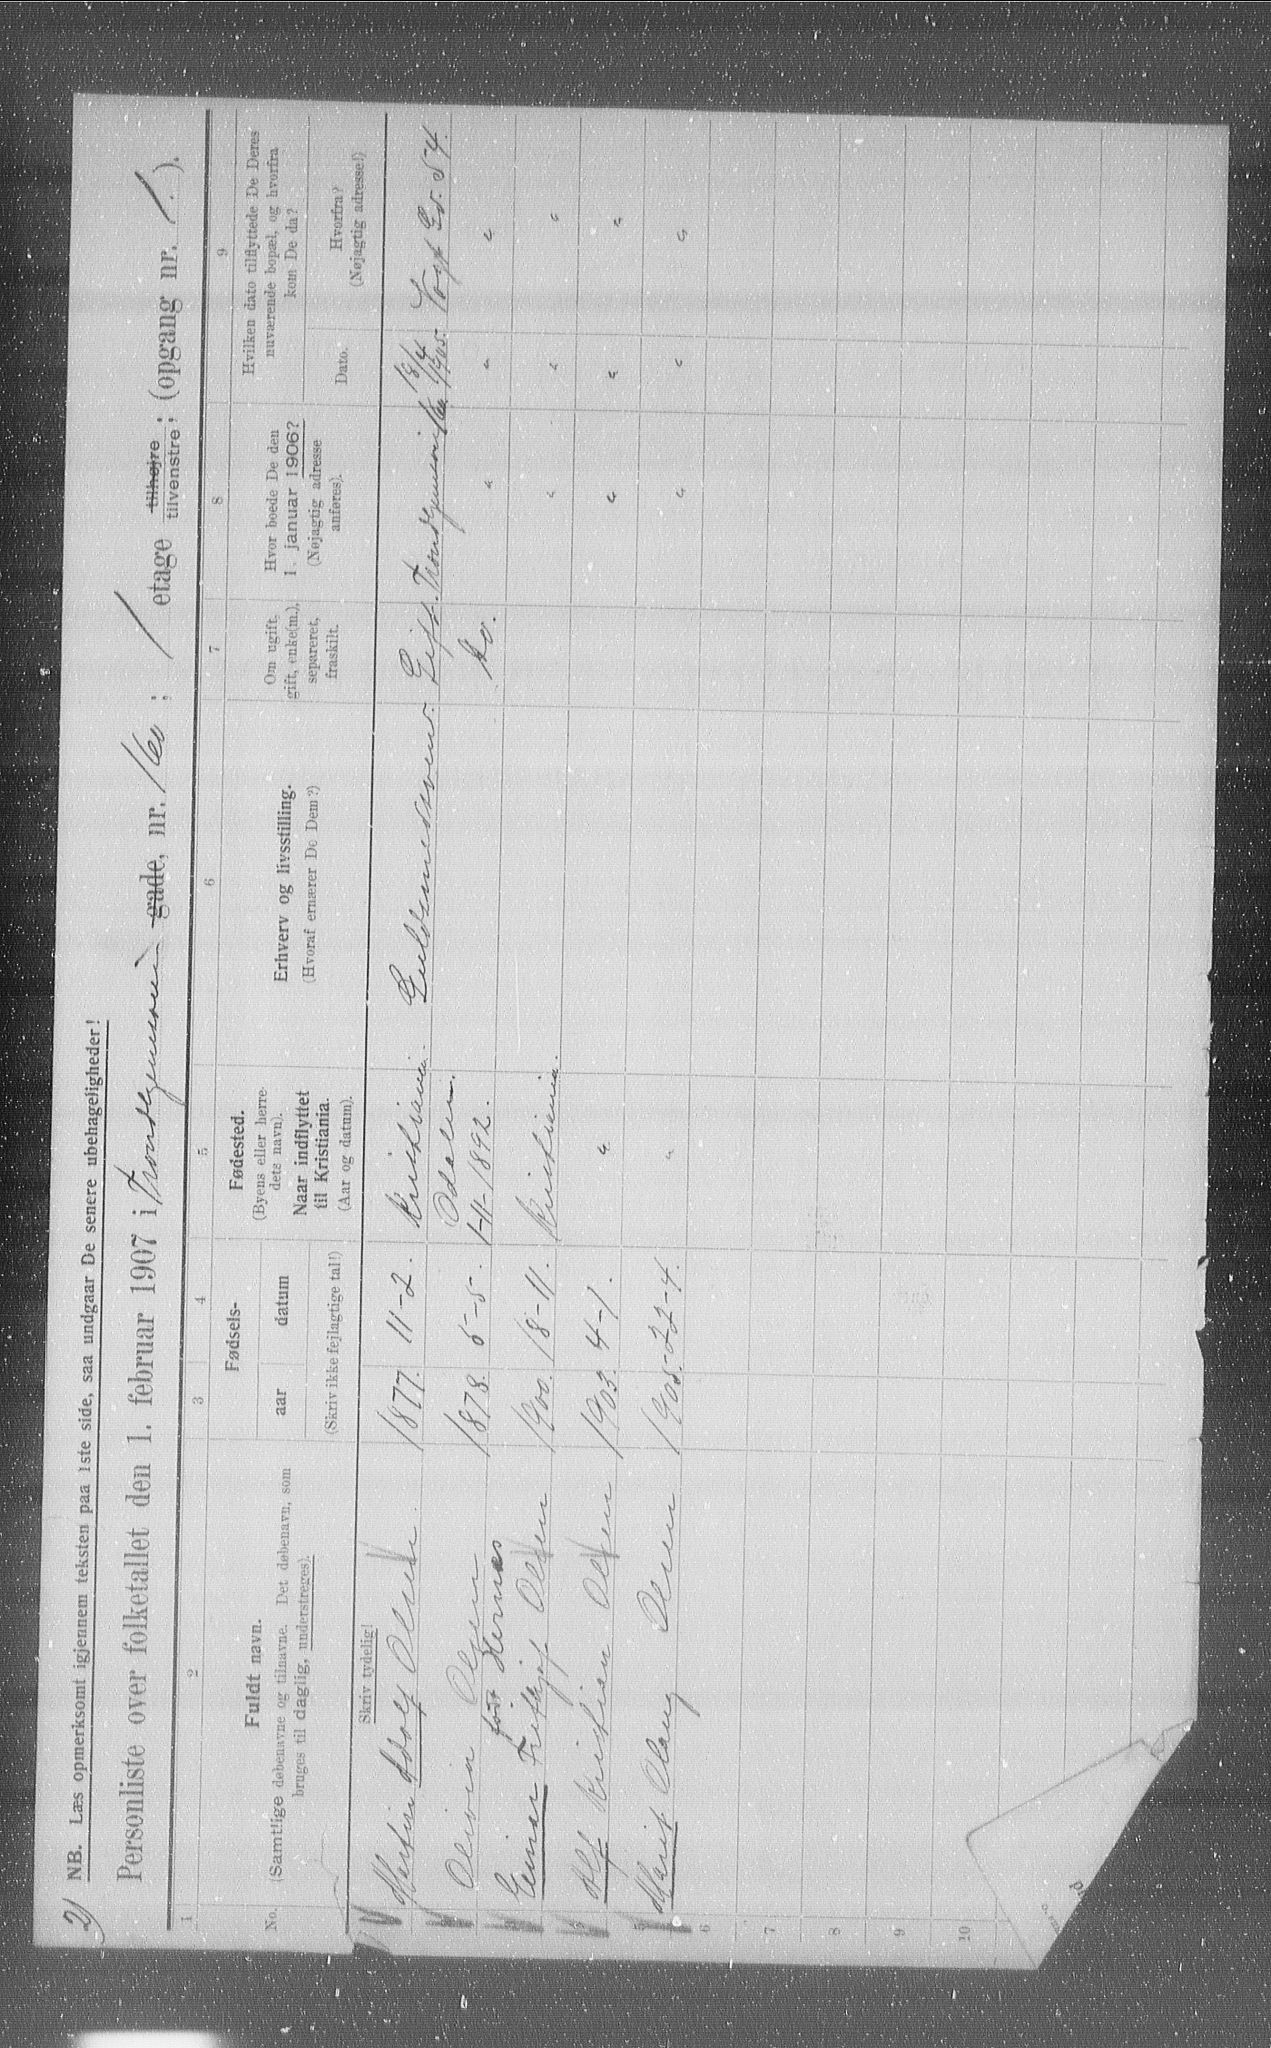 2)
NB. Læs opmerksomt igjennem teksten paa 1ste side, saa undgaar De senere ubehageligheder!
Personliste over folketallet den 1. februar 1907 i Trondhjemsvei gade, nr. 16a ; 1 etage tilhøjre tilvenstre ; (opgang nr. 1. ).
1 2 3 4 5 6 7 8 9
No.
Fuldt navn.
(Samtlige døbenavne og tilnavne. Det døbenavn, som
bruges til daglig, understreges).
Fødsels-
aar datum
(Skriv ikke fejlagtige tal!)
Fødested.
(Byens eller herre-
dets navn).
Naar indflyttet
til Kristiania.
(Aar og datum).
Erhverv og livsstilling.
(Hvoraf ernærer De Dem?)
Om ugift,
gift, enke(m.),
separeret,
fraskilt.
Hvor boede De den
1. januar 1906?
(Nøjagtig adresse
anføres).
Hvilken dato tilflyttede De Deres
nuværende bopæl, og hvorfra
kom De da?
Dato.
Hvorfra?
(Nøjagtig adresse!)
Skriv tydelig!
Adolf Olsen. 1877. 11-2. Kristiania. Guldsmedsvend. Gift. Trondhjemsvei 16a. 18/4 1905. Vogt Gd. 54.
Olivia Olsen født Hernæs 1878. 5-5. Odalen. 1-11-1892. do. " " "
Einar Frithjof Olsen 1900. 18-11. Kristiania. " " "
Alf Kristian Olsen 1903. 4-1. " " " "
Marit Olaug Olsen 1905. 22-4. " " " "
6
7
8
9
10